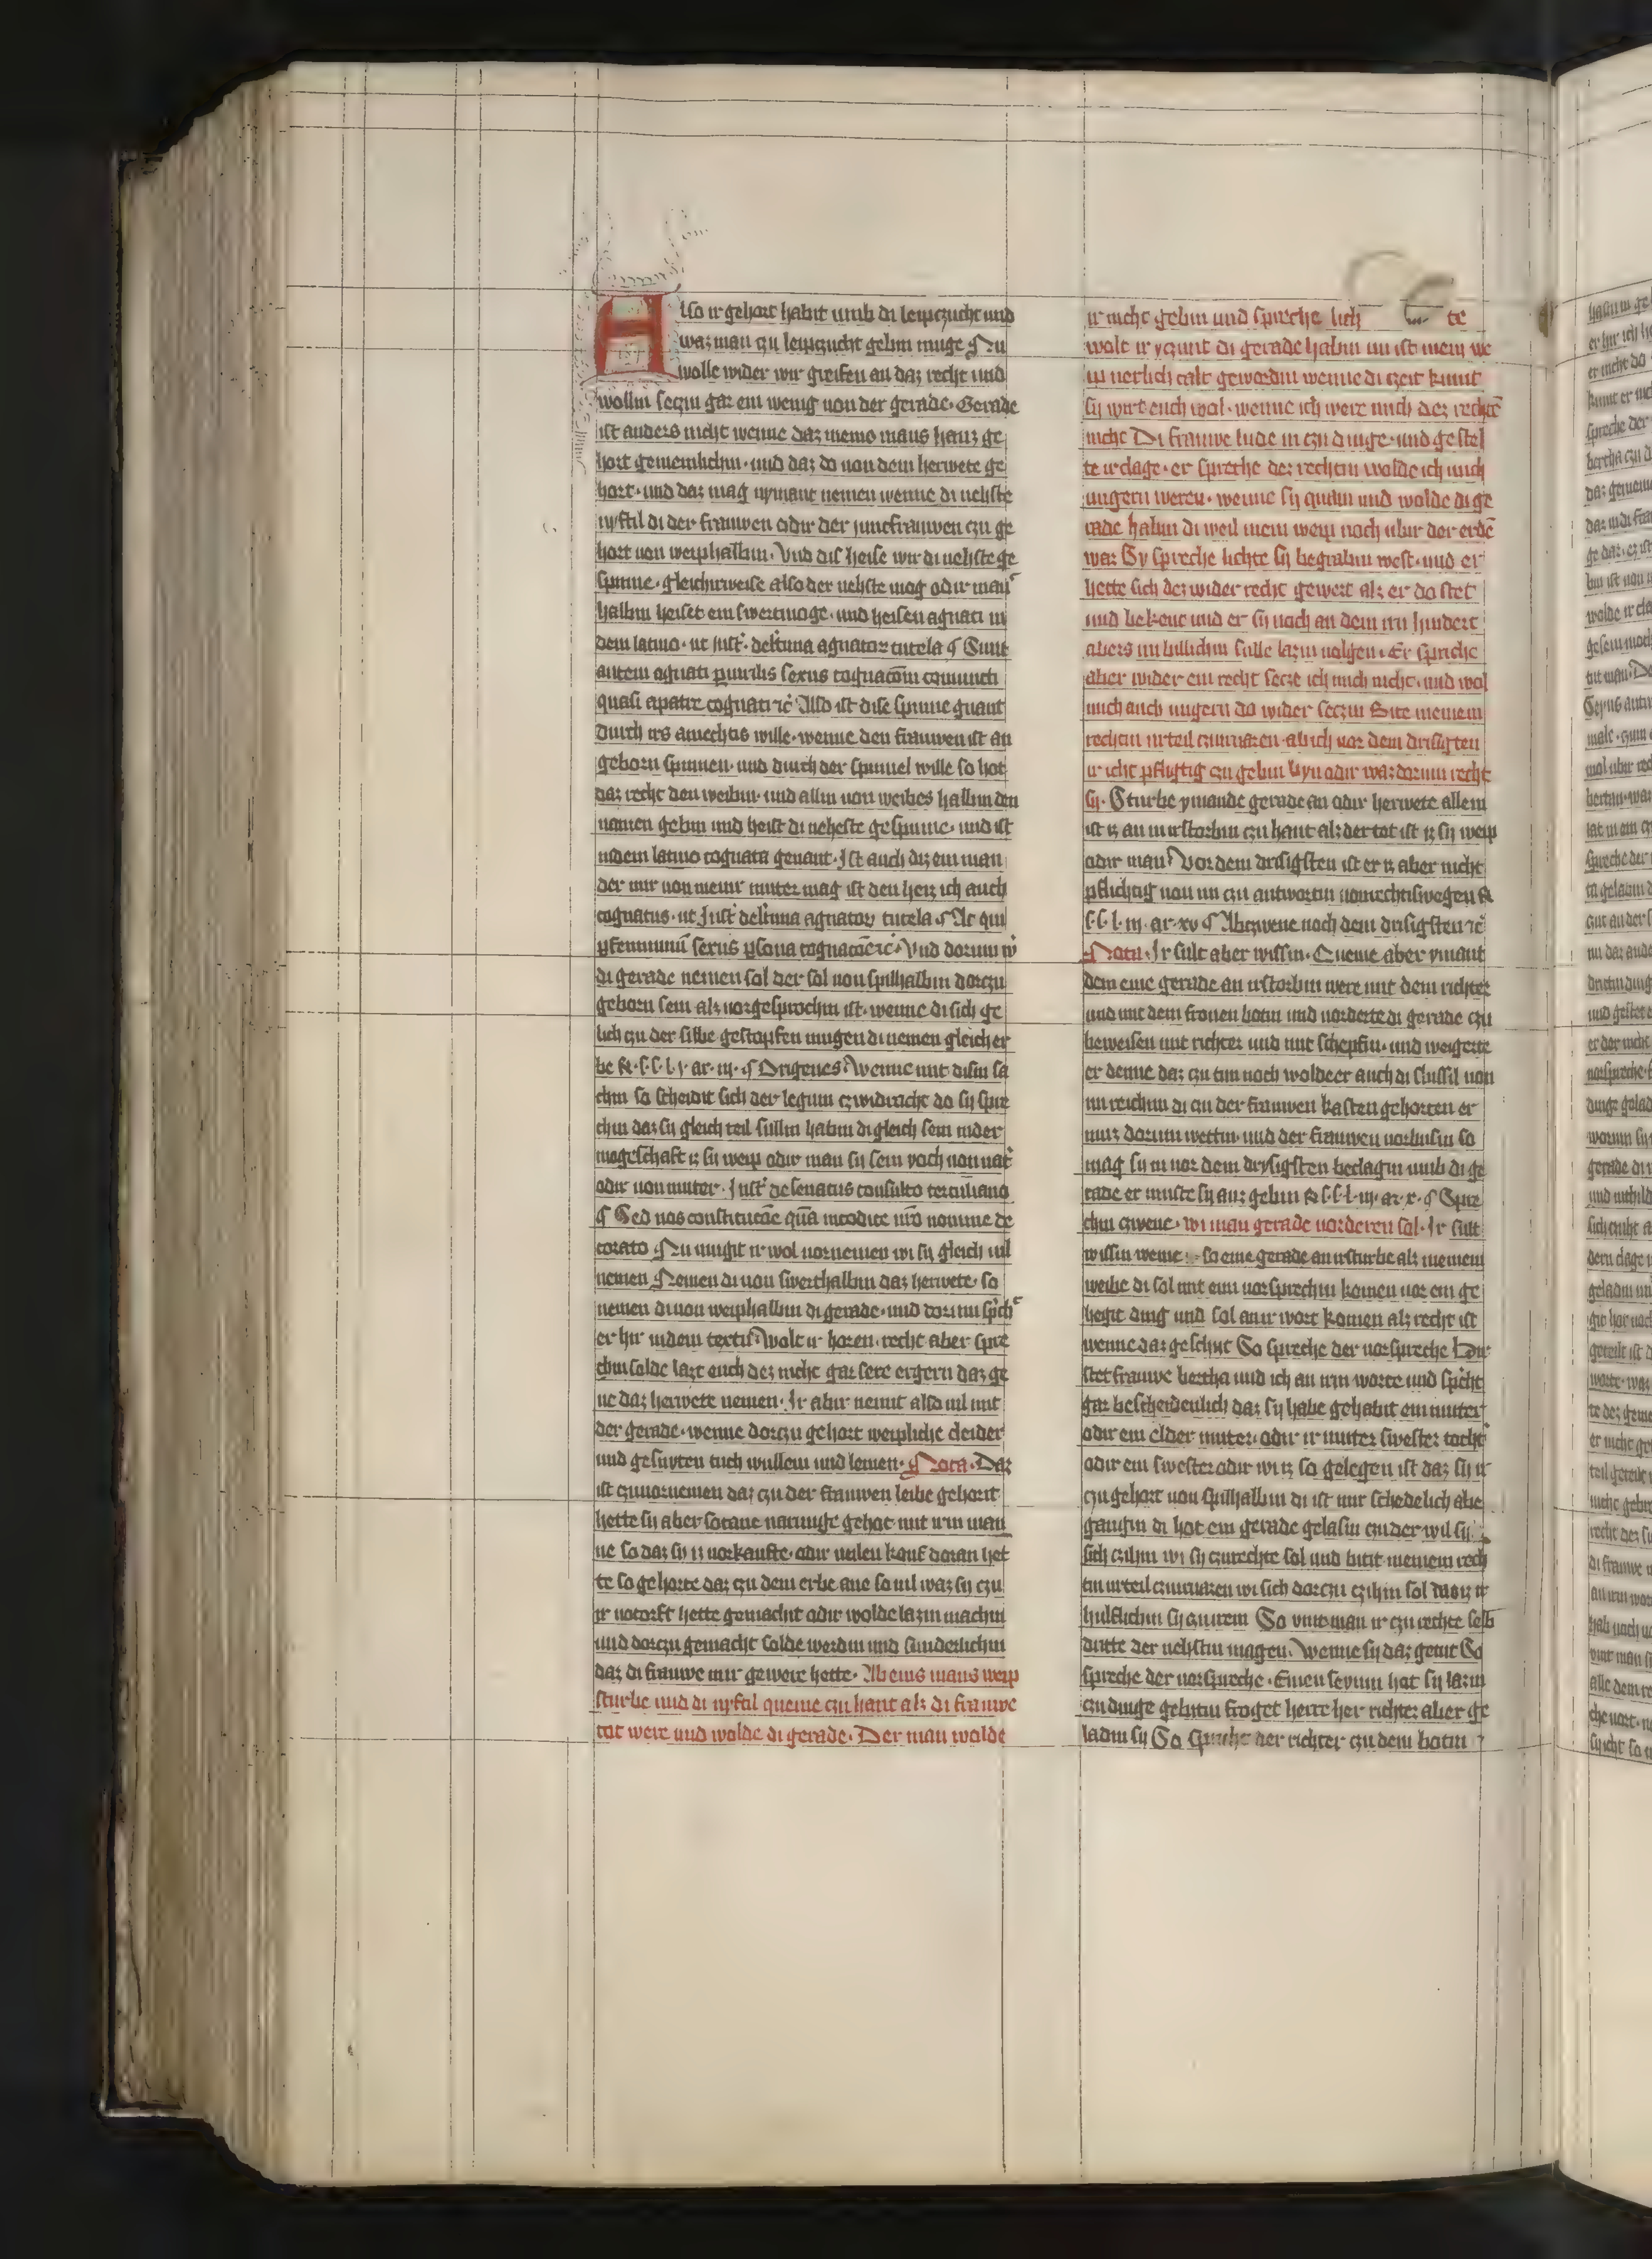 Also ir gehort habit umb di leipczucht und
waz man czu leipczucht gebin muge Nu
wolle wider wir greifen an daz recht und
wollin seczin gar ein wenig von der gerade. Gerade
ist anders nicht wenne daz in eins mans hauz ge
hort gemeinlichin. und daz do von dem herwete ge
hort. und daz mag nymant nemen wenne di nehste
nyftil di der frauwen odir der juncfrauwen czu ge
hort von weiphalbin. Und dis heise wir di nehste ge
spinne. gleichirweise also der nehste mog odir man
halbin heiset ein swertmoge. und heisen agnati in
dem latino. ut Inst. de legitima agnatorum tutela ¶ Sunt
autem agnati per virilis sexus cognacionem coniuncti
quasi a patre cognati etc̃ Also ist dise spinne gnant
durch irs amechtis wille. wenne den frauwen ist an
geborn spinnen. und durch der spinnel wille so hot
daz recht den weibin. und allin von weibes halbin den
namen gebin und heist di neheste gespinne. und ist
in dem latino cognata genant. Ist auch diz ein man
der mir von meinr muter mag ist den heiz ich auch
cognatus. ut Inst̃ de legitima agnatorum tutela ¶ At qui
per femininum sexus persona cognacione etc̃. Und dorum wer
di gerade nemen sol der sol von spilhalbin dorczu
geborn sein alz vorgesprochin ist. wenne di sich ge
lich czu der sibbe gestopfen mugen di nemen gleich er
be R. s. s. l. j. ar. iij. ¶ Origenes. Wenne mit disin sa
chin so scheidit sich der legum czwidracht do sy spre
chin daz sy gleich teil sullin habin di gleich sein in der
mogeschaft iz sy weip odir man sy sein yoch von vater
odir von muter. Inst̃ de senatus consulto terciliano
¶ Sed nos constitucione quam in codice nostro nomine de
corato Nu mugit ir wol vornemen wi sy gleich vil
nemen Nemen di von swerthalbin daz herwete. so
nemen di von weiphalbin di gerade. und dorum sprichet
er hir in dem textu. Wolt ir horen. recht aber spre
chin solde lazt euch dez nicht gar sere ergern daz ge
ne daz herwete nemen. Ir abir nemit also vil mit
der gerade. wenne dorczu gehort weipliche cleider
und gesnyten tuch wullein und leinen. Nota. Daz
ist czuvornemen daz czu der frauwen leibe gehorit
hette sy aber sotane narunge gehot mit irm man
ne so daz sy iz vorkaufte. odir veilen kouf doran het
te so gehorte daz czu dem erbe ane so vil waz sy czu
ir notorft hette gemacht odir wolde lazin machin
und dorczu gemacht solde werdin und sunderlichin
daz di frauwe mir gewere hette. Ab eins mans weip
sturbe und di nyftil queme czu hant alz di frauwe
tot were und wolde di gerade. Der man wolde
ir nicht gebin und spreche lich te
wolt ir yczunt di gerade habin nu ist mein we
ip nerlich calt gewordin wenne di czeit kumt
sy wirt euch wol. wenne ich were mich dez rechte
nicht Di frauwe lude in czu dinge. und gestel
te ir clage. er spreche dez rechtin wolde ich mich
ungern weren. wenne sy quam und wolde di ge
rade habin di weil mein weip noch ubir der erde
waz Sy spreche lichte sy begrabin west. und er
hette sich dez wider recht gewert alz er do stet
und bekent und er sy noch an dem irn hindert
abers im billichin sulle lazin volgen. Er spreche
aber wider ein recht secze ich mich nicht. und wol
mich auch ungern do wider seczin Bite meinem
rechtin urteil czuvaren ab ich vor dem drisigten
ir icht pflugtig czu gebin kyn odir waz dorum recht
sy. Sturbe ymande gerade an odir herwete allein
ist iz an irrstorbin czu hant alz der tot ist iz sy weip
odir man Vor dem drisigsten ist er iz aber nicht
pflichtig von im czu antwortin von rechtiswegen R.
s. s. l. iij. ar. xv ¶ Abczwene noch dem drisigsten etc̃
Nota. Ir sult aber wissin. Queme aber ymant
dem eine gerade an irstorbin were mit dem richter
und mit dem fronen botin und vorderte di gerade czu
beweisen mit richter und mit schepfin. und weigerte
er denne daz czu tun noch wolde er auch di slussil von
im reichin di czu der frauwen kasten gehorten er
muz dorum wettin. und der frauwen vorbusin so
mag sy in vor dem drysigsten beclagin umb di ge
rade er muste sy auz gebin R. s. s. l. iij. ar. x. ¶ Spre
chin czwene. wi man gerade vorderen sol. Ir sult
wissin wenne. so eine gerade an irsturbe alz meinem
weibe di sol mit eim vorsprechin komen vor ein ge
hegit ding und sol an ir wort komen alz recht ist
wenne daz geschiit So spreche der vorspreche Do
stet frauwe bertha und ich an irm worte und spricht
gar bescheidenlich daz sy habe gehabit ein muter
odir ein elder muter. odir ir muter swester tocht
odir ein swester odir wi iz so gelegen ist daz sy ir
czu gehort von spilhalbin di ist mir schedelich abe
gangin di hot ein gerade gelasin czu der wil sy
sich czihin wi sy czurechte sol und bitit meinem rech
tin urteil czuvaren wi sich dorczu czihin sol daz ir
hulflichin sy czu irem So vint man ir czu rechte selb
dritte der nehstin magen. Wenne sy daz getut So
spreche der vorspreche. Einen seyum hat sy lazin
czu dinge gebitin froget herre her richter aber ge
ladin sy So spriche der richter czu dem botin